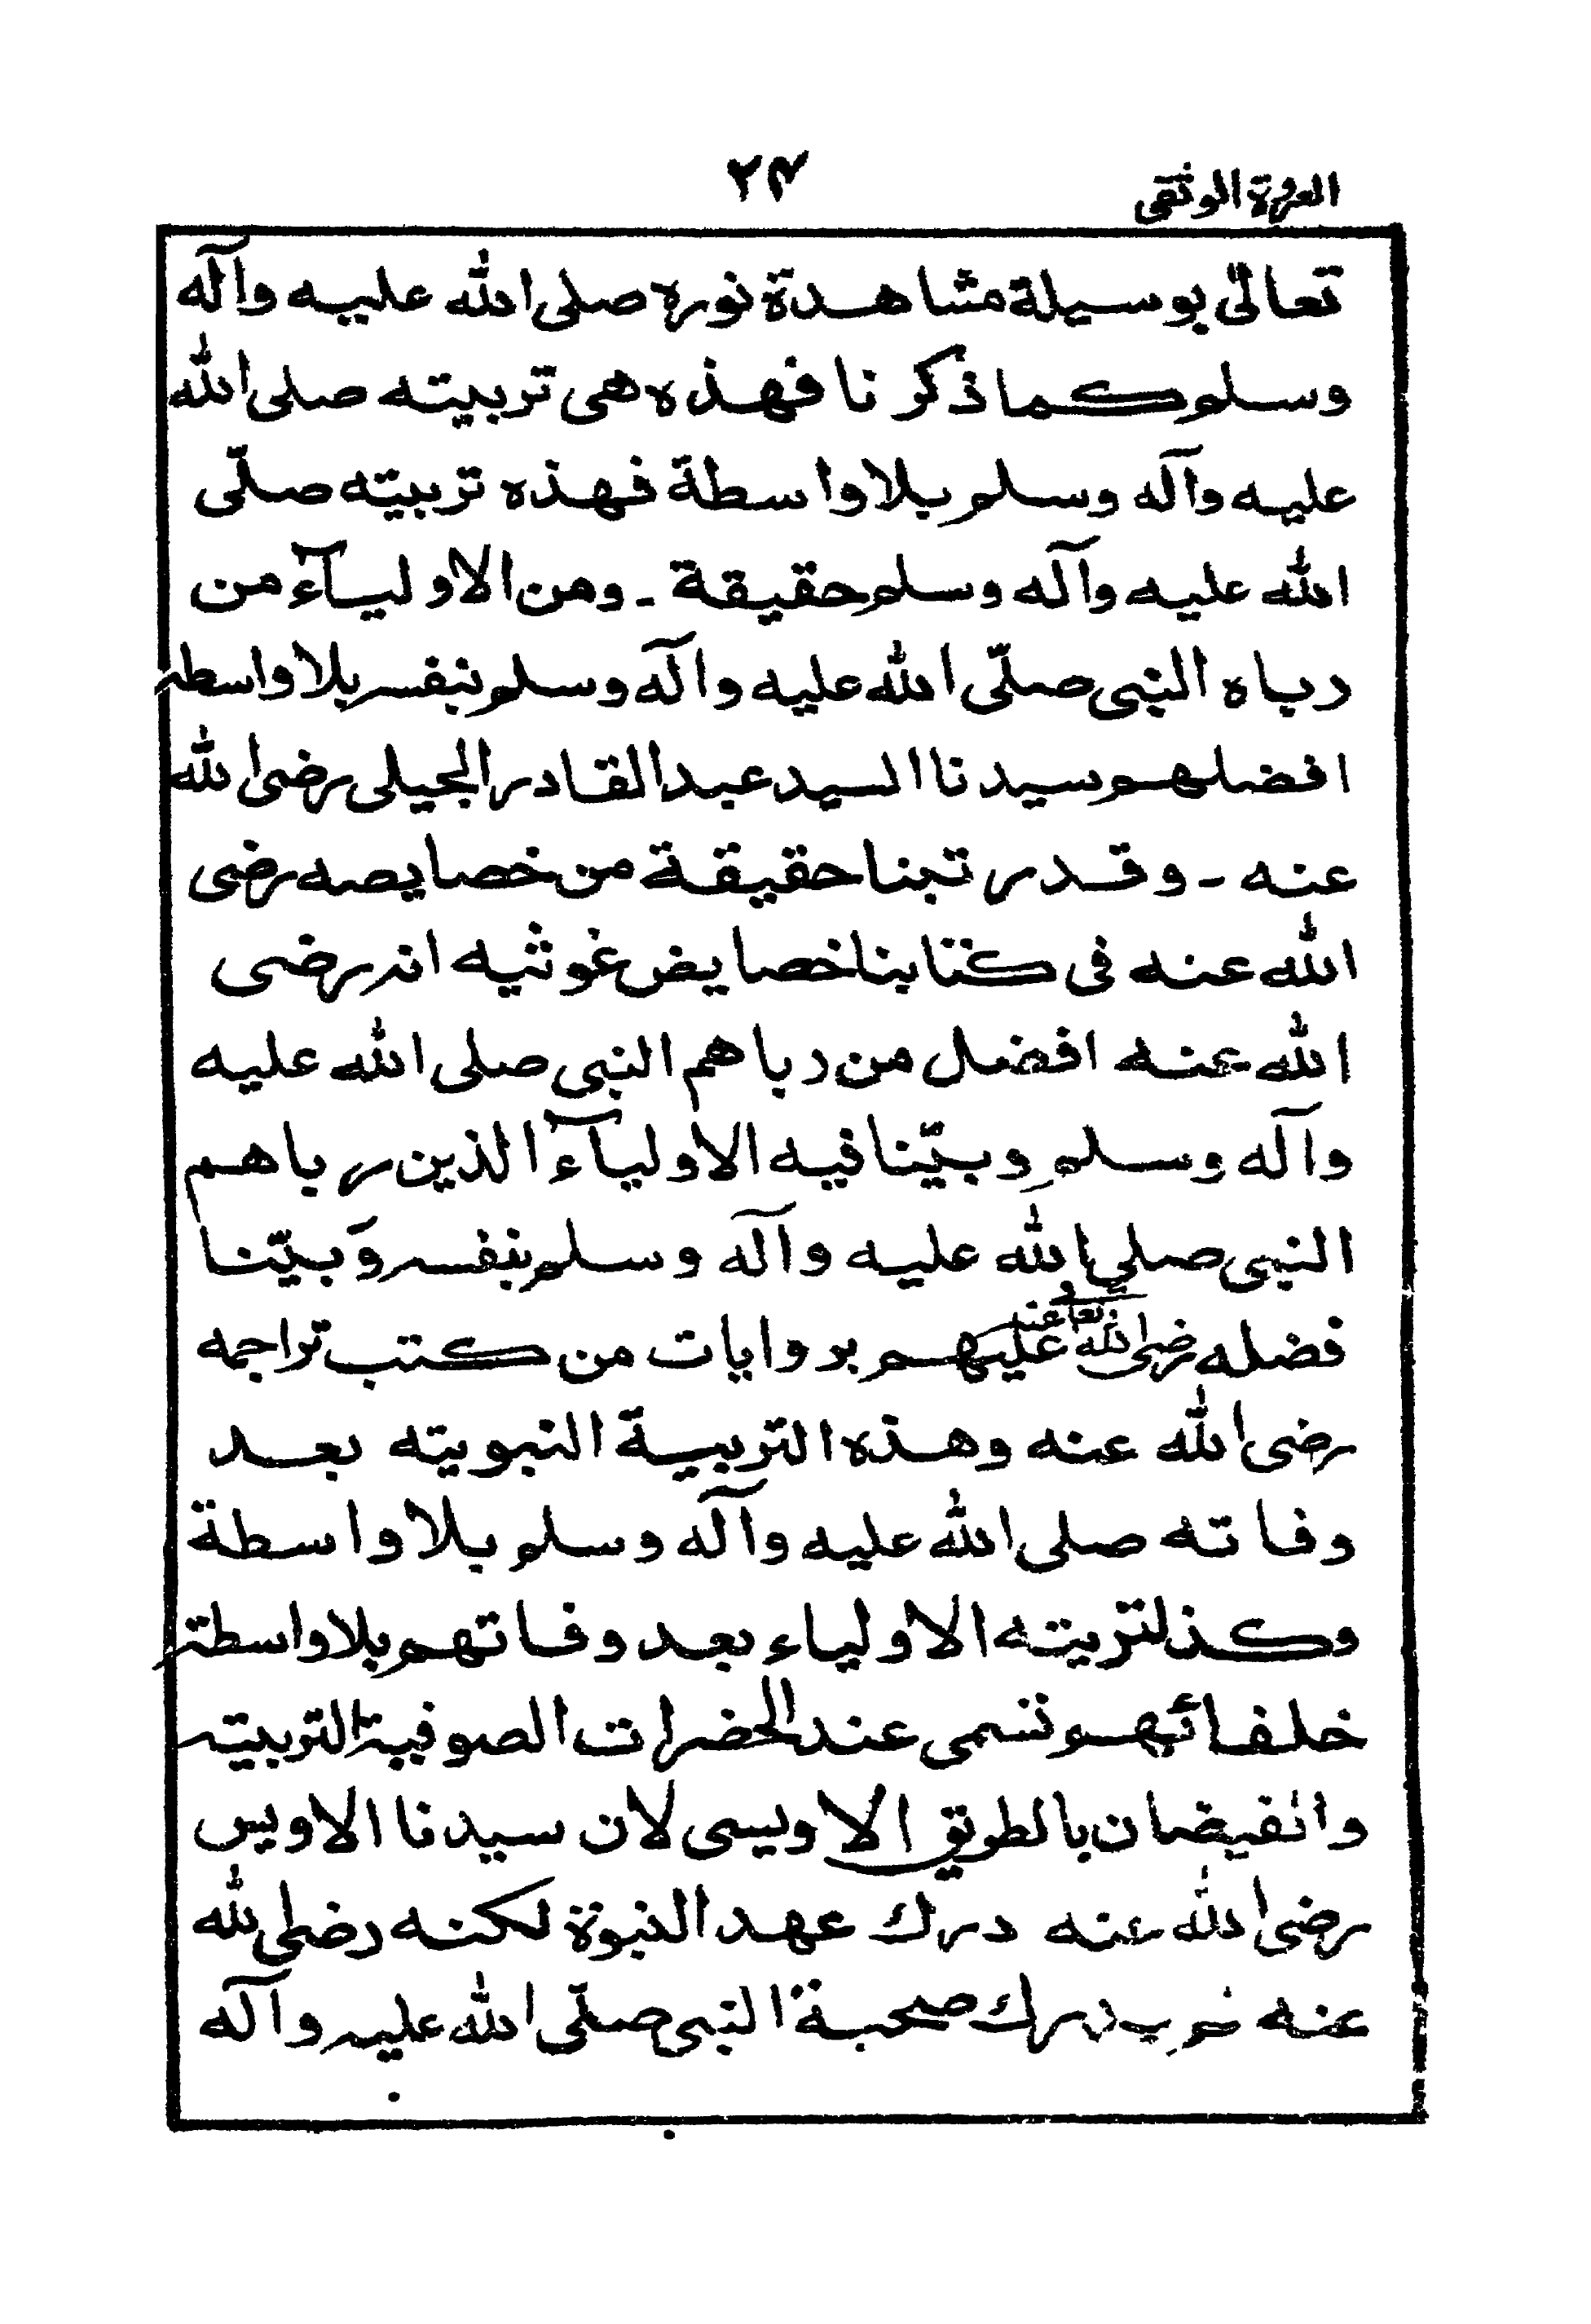 العروة الوثقى
٢٤
تعالىٰ بوسيلة مشاهدة نوره صلى الله عليه وآله
وسلم كما ذكرنا فهذه هى تربيته صلى الله
عليه وآله وسلم بلا واسطة فهذه تربيته صلّى
الله عليه وآله وسلم حقيقة ـ ومن الاولياۤء من
رباه النبى صلّى الله عليه وآله وسلم بنفسه بلا واسطه
افضلهم سيدنا السيد عبدالقادر الجيلى رضى الله
عنه ـ وقد رتبنا حقيقة من خصايصه رضى
الله عنه فى كتابنا خصايض غوثيه انه رضى
الله عنه افضل من رباهم النبى صلى الله عليه
وآله وسلم وبيّنا فيه الاولياۤء الذين رباهم
النبى صلى الله عليه وآله وسلم بنفسه وَبيّنا
فضله رضى الله تعالى عنه عليهم بروايات من كتب تراجمه
رضى الله عنه وهذه التربية النبويته بعد
وفاته صلى الله عليه وآله وسلم بلا واسطة
وكذلتربيته الاولياء بعد وفاتهم بلا واسطته
خلفائهم تسمى عند الحضرات الصوفية التربيته
وانفيضان بالطريق الاويسى لان سيدنا الاويس
رضى الله عنه درك عهد النبوة لكنه رضى الله
عنه درك صحبة النبى صلّى الله عليه وآله